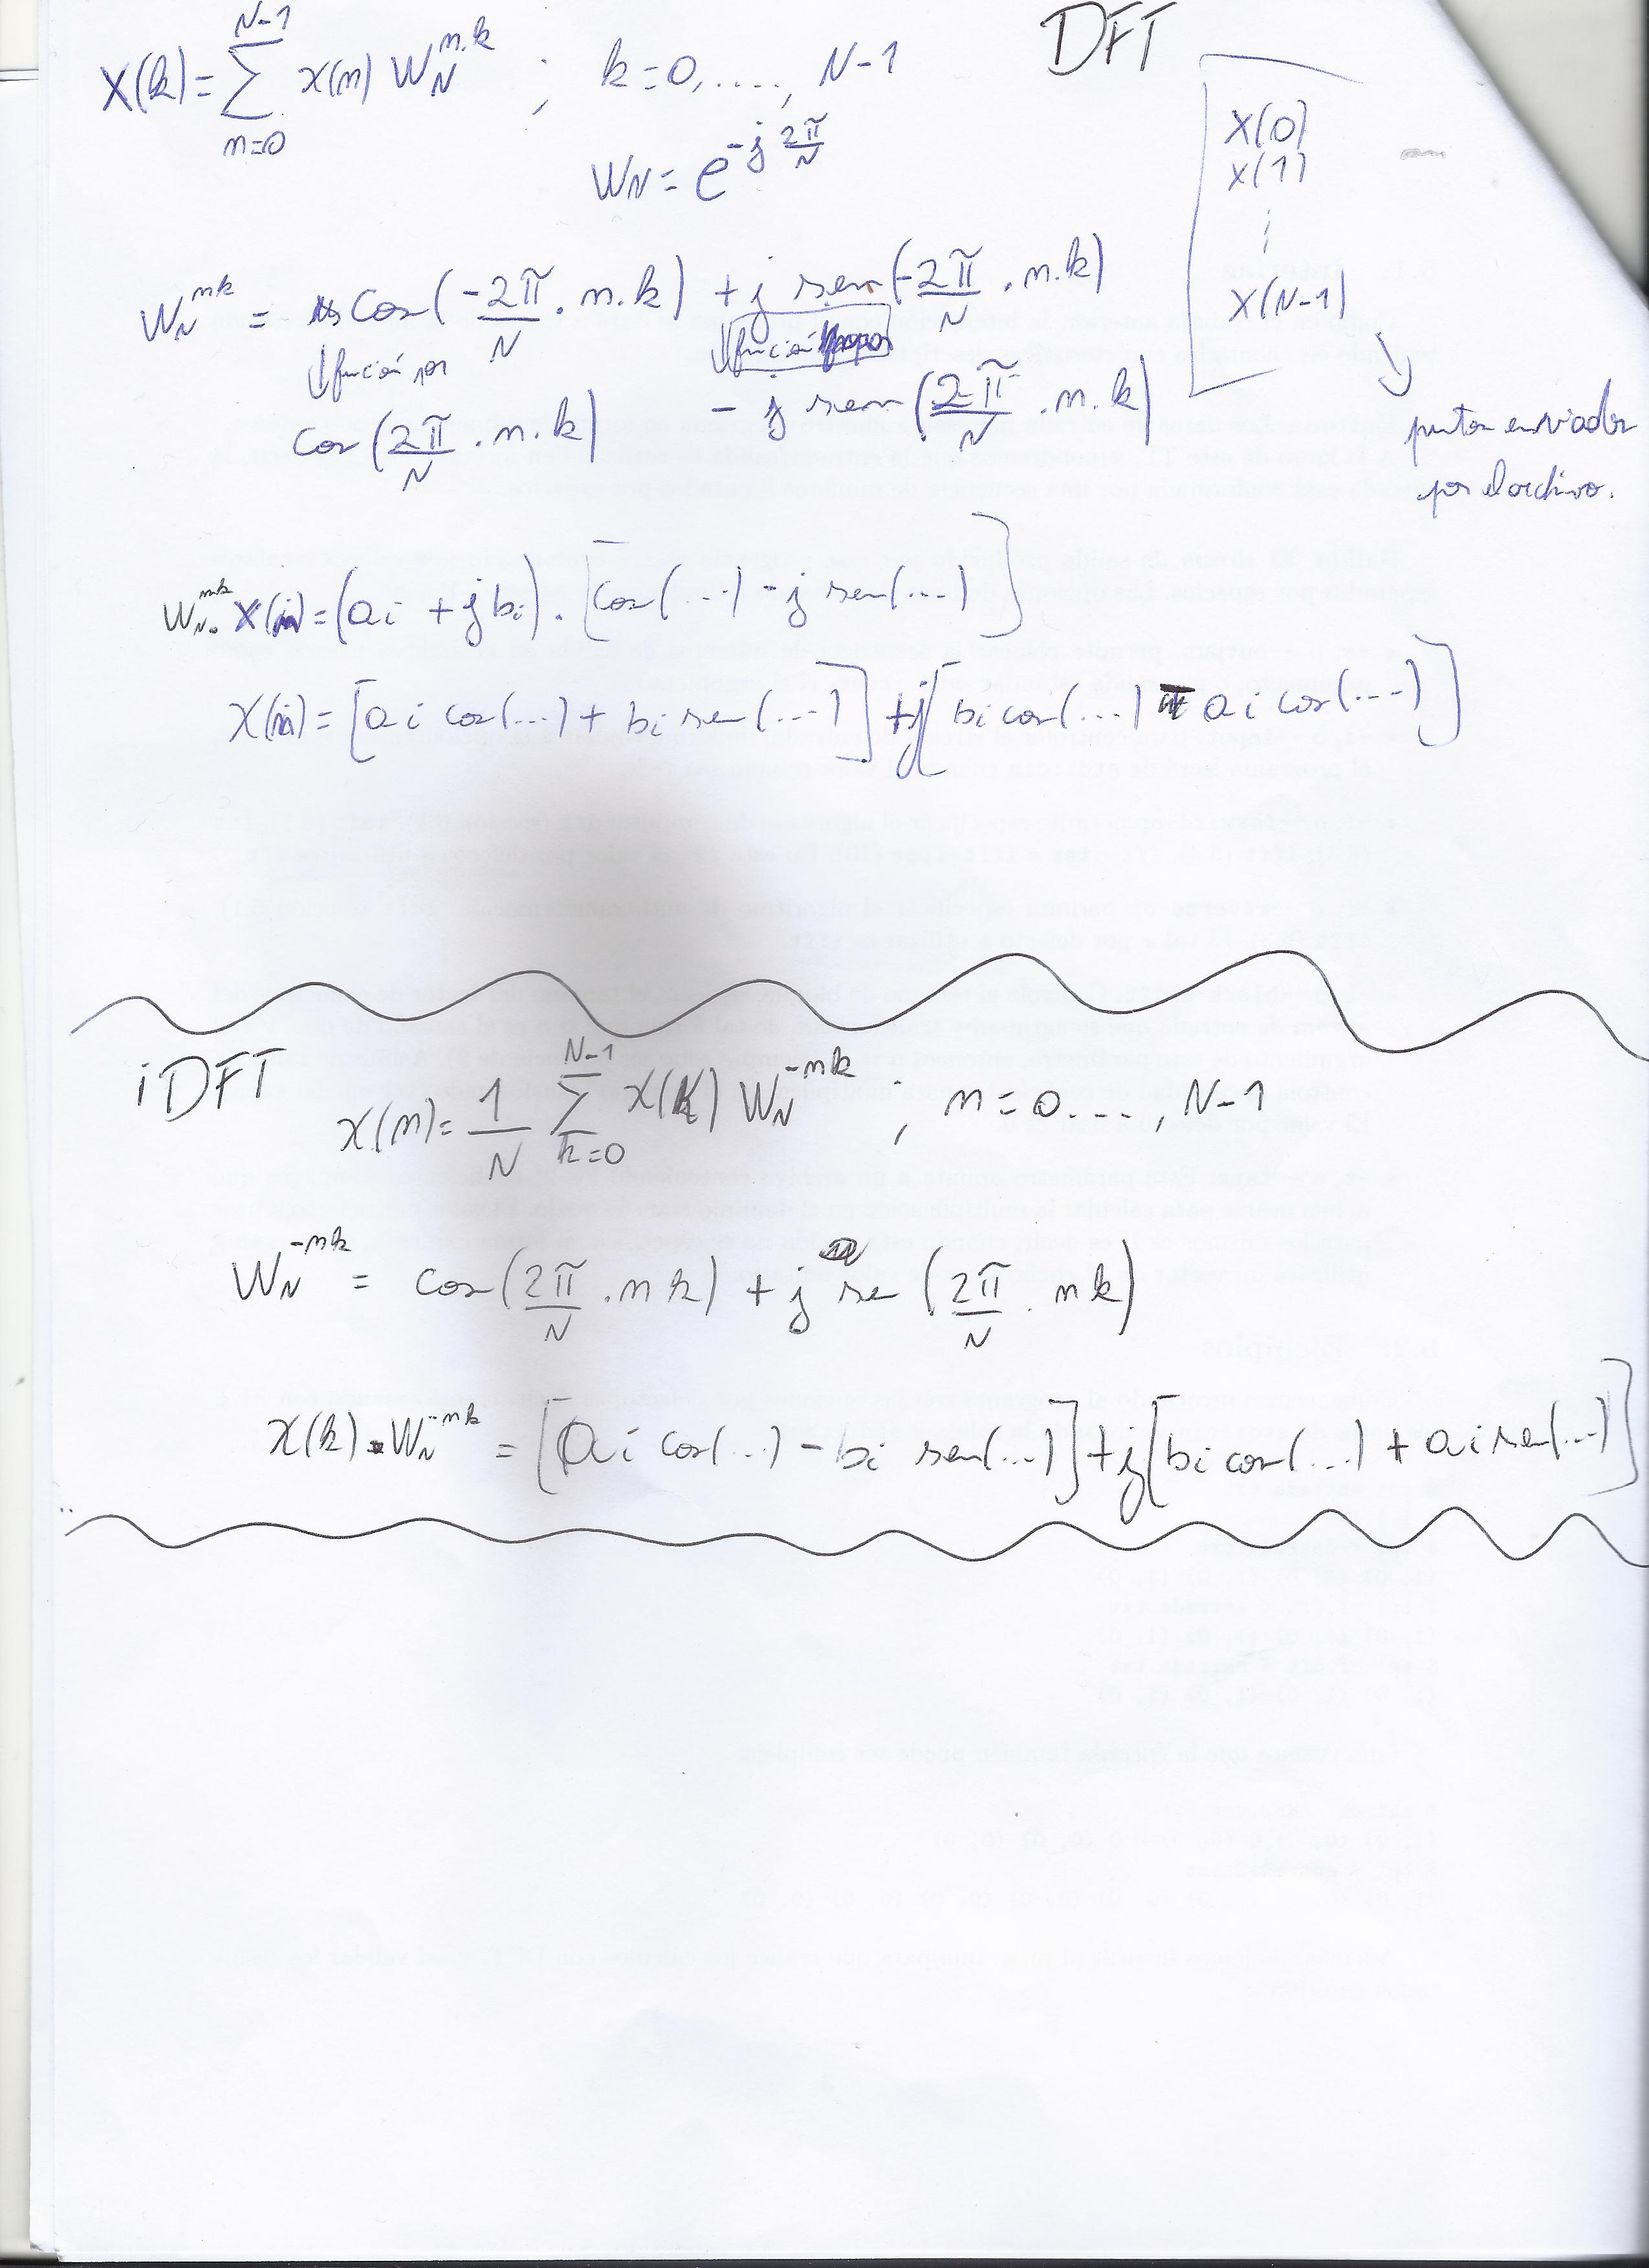 DFT
X(k) = N-1 Σ n=0 x(n) W_N^{n.k} ; k=0,....., N-1
W_N = e^{-j 2π/N}
X(0)
X(1)
X(N-1)
puntos enviados
por el archivo.
W_N^{nk} = cos(-2π/N . n.k) + j sen(-2π/N . n.k)
↓función par ↓función impar
cos(2π/N . n.k) - j sen(2π/N . n.k)
W_N^{nk}. X(n) = (ai + j bi) . [cos(...) - j sen(...)]
X(n) = [ai cos(...) + bi sen(...)] + j[bi cos(...) - ai cos(...)]
iDFT
x(n) = 1/N N-1 Σ k=0 X(k) W_N^{-nk} ; n=0...., N-1
W_N^{-nk} = cos(2π/N . nk) + j sen(2π/N . nk)
X(k) . W_N^{-nk} = [ai cos(...) - bi sen(...)] + j[bi cos(...) + ai sen(...)]